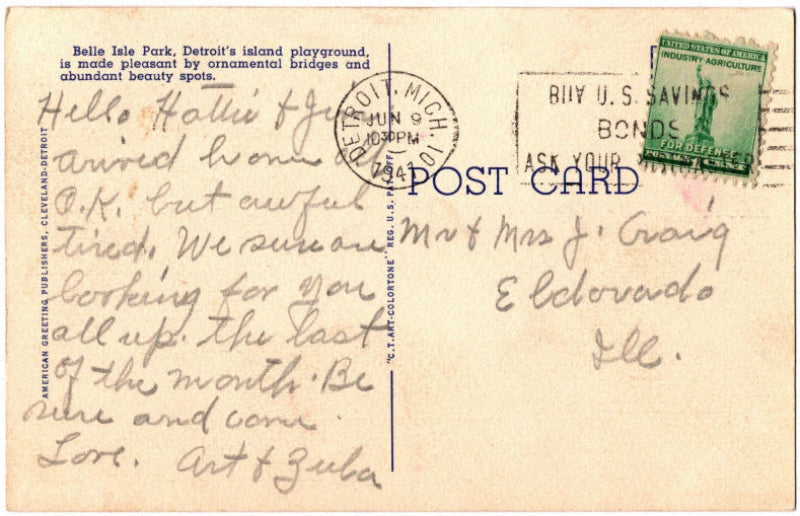 Belle Isle Park, Detroit's island playground,
is made pleasant by ornamental bridges and
abundant beauty spots.
Hello Hattie &
arived home all
O.K. but awful
tired. We sure are
looking for you
all up. the last
of the month. Be
sure and come.
Love. Art & Zuba
AMERICAN GREETING PUBLISHERS, CLEVELAND-DETROIT
"C.T. ART-COLORTONE" REG. U.S. PAT. OFF.
DETROIT, MICH. 101
JUN 9
10 30 PM
1941
BUY U.S. SAVINGS
BONDS
ASK YOUR POSTMASTER
UNITED STATES OF AMERICA
INDUSTRY AGRICULTURE
FOR DEFENSE
POST CARD
Mr & Mrs J. Craig
Eldorado
Ill.